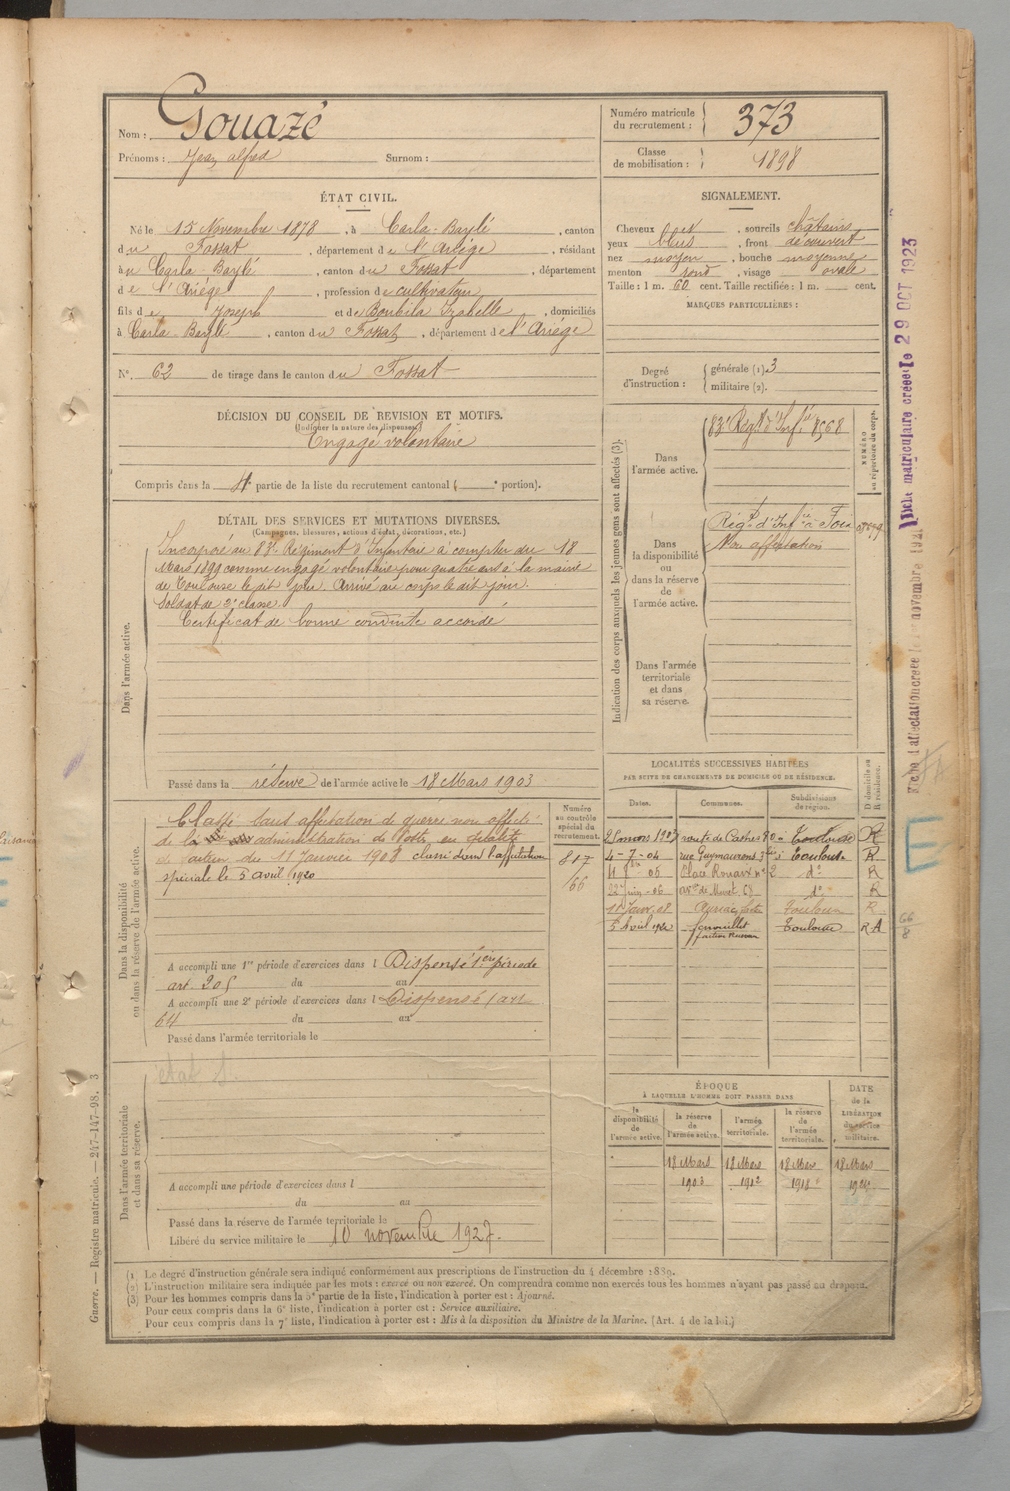 Nom : Gouazé
Prénoms : Jean alfred Surnom :
Numéro matricule du recrutement : 373
Classe de mobilisation : 1898
ÉTAT CIVIL.
Né le 15 Novembre 1878, à Carla-Baylé, canton
du Fossat, département de l'Ariége, résidant
à u Carla-Baylé, canton du Fossat, département
de l'Ariége, profession de cultivateur
fils de Joseph et de Bonbila Izabelle, domiciliés
à Carla-Baylé, canton du Fossat, département de l'Ariége
N° 62 de tirage dans le canton du Fossat
SIGNALEMENT.
Cheveux et, sourcils châtains
yeux bleus, front découvert
nez moyen, bouche moyenne
menton rond, visage ovale
Taille : 1 m. 60 cent. Taille rectifiée : 1 m. cent.
MARQUES PARTICULIÈRES :
Degré d'instruction : générale (1). 3
militaire (2).
DÉCISION DU CONSEIL DE REVISION ET MOTIFS.
(Indiquer la nature des dispenses)
Engagé volontaire
Compris dans la 4e partie de la liste du recrutement cantonal ( e portion).
DÉTAIL DES SERVICES ET MUTATIONS DIVERSES.
(Campagnes, blessures, actions d'éclat, décorations, etc.)
Dans l'armée active.
Incorporé au 83e Régiment d'Infanterie à compter du 18
Mars 1899 comme engagé volontaire pour quatre ans à la mairie
de Toulouse le dit jour. Arrivé au corps le dit jour.
Soldat de 2e classe.
Certificat de bonne conduite accordé
Passé dans la réserve de l'armée active le 18 Mars 1903
Indication des corps auxquels les jeunes gens sont affectés (3).
NUMÉRO au répertoire du corps.
Dans l'armée active.
83e Régt d'Infie 8568
Dans la disponibilité ou dans la réserve de l'armée active.
Régt d'Infie à Foix
Non affectation
Dans l'armée territoriale et dans sa réserve.
Dans la disponibilité ou dans la réserve de l'armée active.
Classé dans affectation de guerre non affecté
de la administration de Poste en qualité
de facteur du 11 Janvier 1908 classé dans l'affectation
spéciale le 5 avril 1920
Numéro au contrôle spécial du recrutement.
817
66
A accompli une 1re période d'exercices dans l Dispensé 1ère période
art. 205 du au
A accompli une 2e période d'exercices dans l Dispensé (art
64 du au
Passé dans l'armée territoriale le
LOCALITÉS SUCCESSIVES HABITÉES
PAR SUITE DE CHANGEMENTS DE DOMICILE OU DE RÉSIDENCE.
Dates. Communes. Subdivisions de région. D domicile ou R résidence.
2 mars 1903 route de Castres 90 Toulouse R
4-7-04 rue Guymaurens 3 Toulouse R
05 Place Rouaix n° 2 do R
22 Juin-06 av. de Muret 68 do R
11 Janv. 08 Auriac Toulouse R
5 Avril 1920 fenouillet Toulouse RA
facteur
Dans l'armée territoriale et dans sa réserve.
A accompli une période d'exercices dans l
du au
Passé dans la réserve de l'armée territoriale le
Libéré du service militaire le 10 novembre 1927.
ÉPOQUE
A LAQUELLE L'HOMME DOIT PASSER DANS
la disponibilité de l'armée active. la réserve de l'armée active. l'armée territoriale. la réserve de l'armée territoriale. DATE de la LIBÉRATION du service militaire.
18 Mars 18 Mars 18 Mars 18 Mars
1903 1912 1918
(1) Le degré d'instruction générale sera indiqué conformément aux prescriptions de l'instruction du 4 décembre 1889.
(2) L'instruction militaire sera indiquée par les mots : exercé ou non exercé. On comprendra comme non exercés tous les hommes n'ayant pas passé au drapeau.
(3) Pour les hommes compris dans la 5e partie de la liste, l'indication à porter est : Ajourné.
Pour ceux compris dans la 6e liste, l'indication à porter est : Service auxiliaire.
Pour ceux compris dans la 7e liste, l'indication à porter est : Mis à la disposition du Ministre de la Marine. (Art. 4 de la loi.)
Guerre. — Registre matricule. — 247-147-98. 3
matriculaire créée le 29 OCT 1923
Fiche d'affectation créée le novembre
FA
66
8